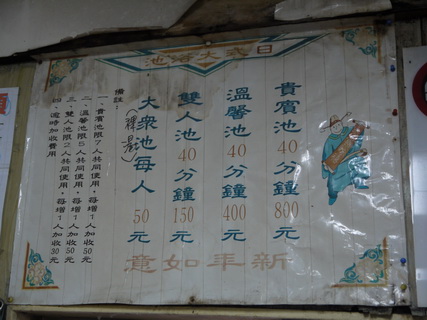 貴賓池40分鐘800元
溫馨池40分鐘400元
雙人池40分鐘150元
大眾池每人50元
備註：
一、貴賓池限7人共同使用，每增1人加收50元
二、溫馨池限5人共同使用，每增1人加收50元
三、雙人池限2人共同使用，每增1人加收30元
四、逾時加收費用
新年如意